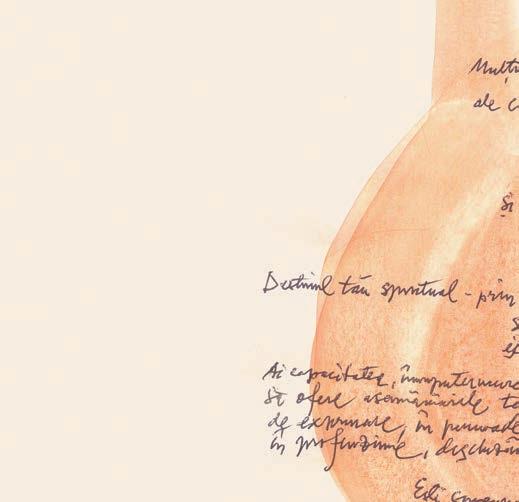 Mulți
ale c
Și
Destinul tău spiritual - prin
s
Ai capacitatea, împuternicirea
Să ofere asemănările ta
de exprimare, în perioade
în profunzime,
Ești